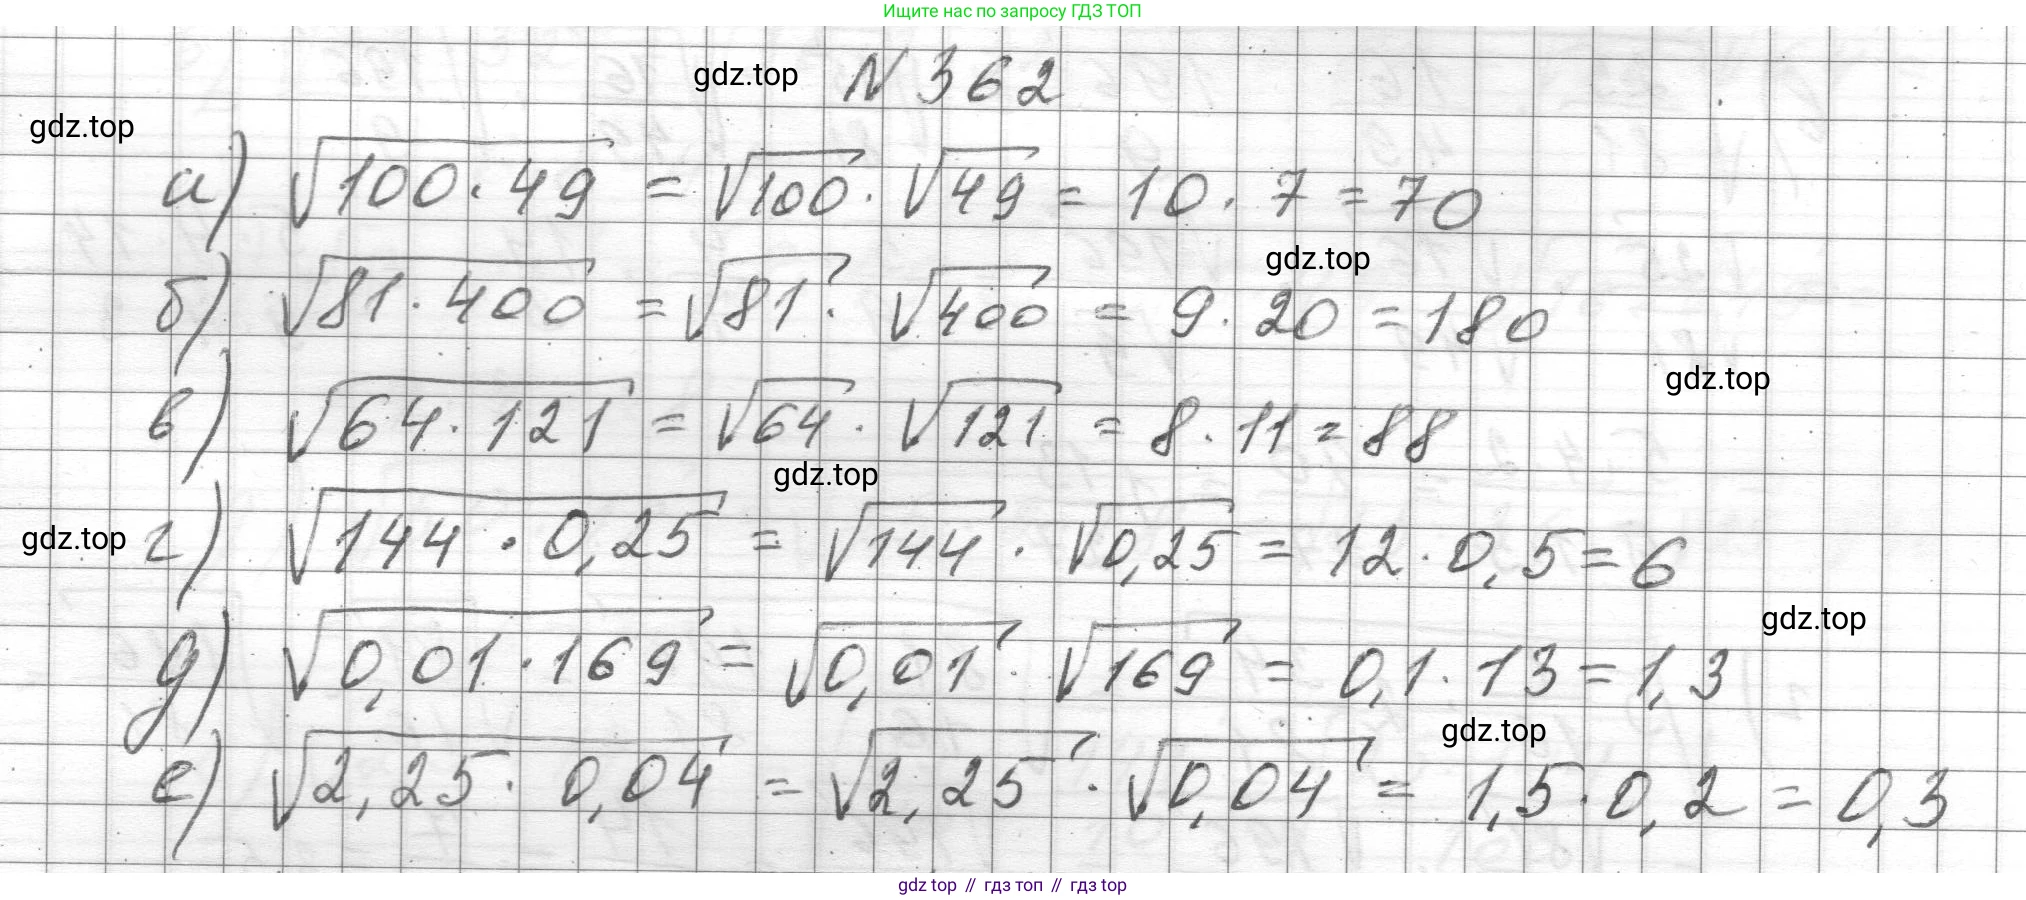 Ищите нас по запросу ГДЗ ТОП
gdz.top N 362
gdz.top
а) √100·49 = √100 · √49 = 10 · 7 = 70
gdz.top
б) √81·400 = √81 · √400 = 9 · 20 = 180
gdz.top
в) √64·121 = √64 · √121 = 8 · 11 = 88
gdz.top
gdz.top
г) √144 · 0,25 = √144 · √0,25 = 12 · 0,5 = 6
gdz.top
д) √0,01·169 = √0,01 · √169 = 0,1 · 13 = 1,3
gdz.top
е) √2,25 · 0,04 = √2,25 · √0,04 = 1,5 · 0,2 = 0,3
gdz top // гдз топ // гдз top